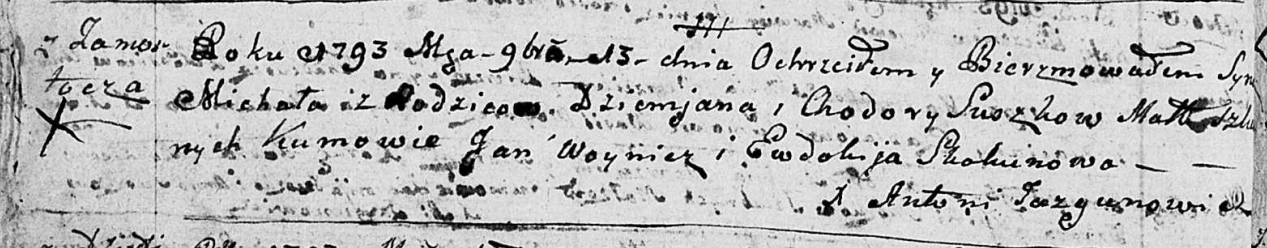 z Zamos-
tocza
Roku 1793 Mca 9bra 13 dnia Ochrzciłem y Bierzmowałem Syn
Michała z Rodzicow Dziemjana i Chodory Suszkow Małż Szlu
nych Kumowie Jan Woynicz i Ewdokija Skakunowa — —
X Antoni Jazgunowicz